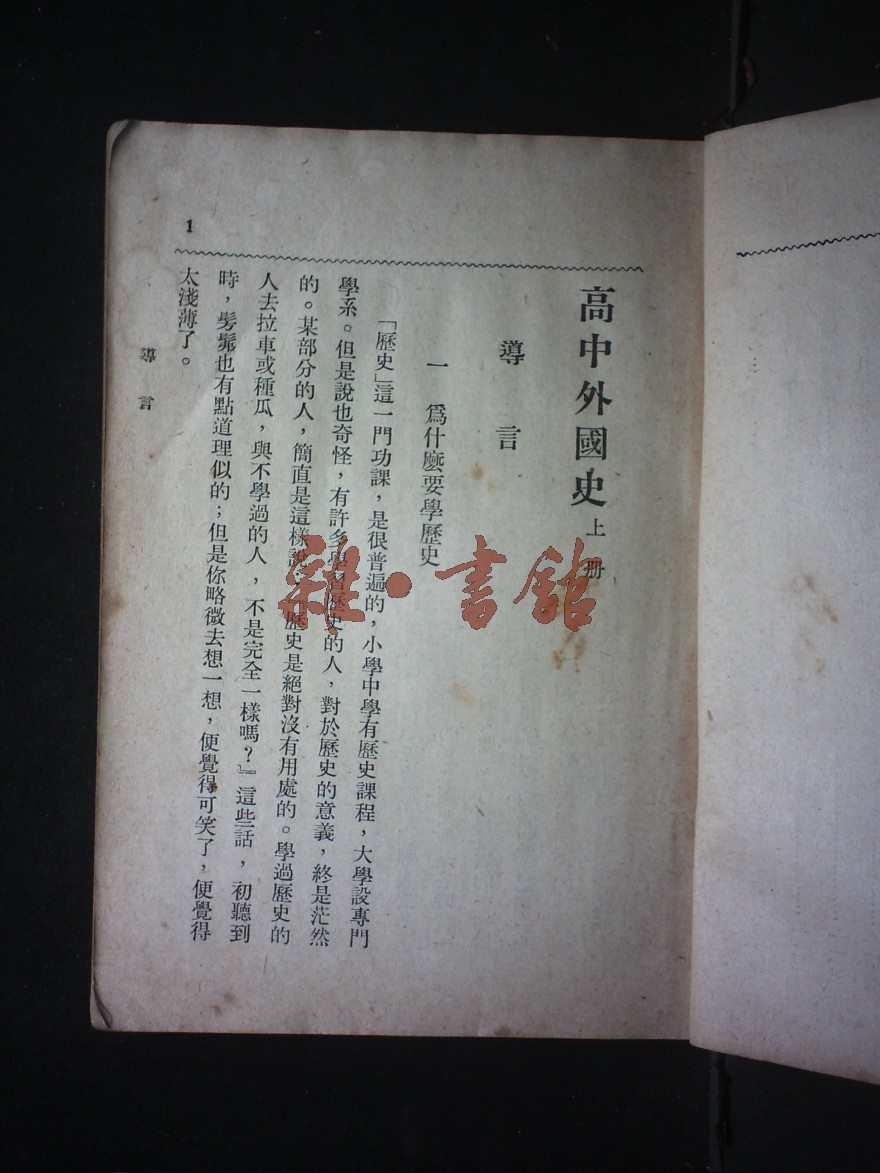 高中外國史 上册
導言
一 爲什麽要學歷史
「歷史」這一門功課，是很普遍的，小學中學有歷史課程，大學設專門
學系。但是說也奇怪，有許多學習歷史的人，對於歷史的意義，終是茫然
的。某部分的人，簡直是這樣說：『歷史是絕對沒有用處的。學過歷史的
人去拉車或種瓜，與不學過的人，不是完全一樣嗎？』這些話，初聽到
時，髣髴也有點道理似的；但是你略微去想一想，便覺得可笑了，便覺得
太淺薄了。
導言
1
雜·書館